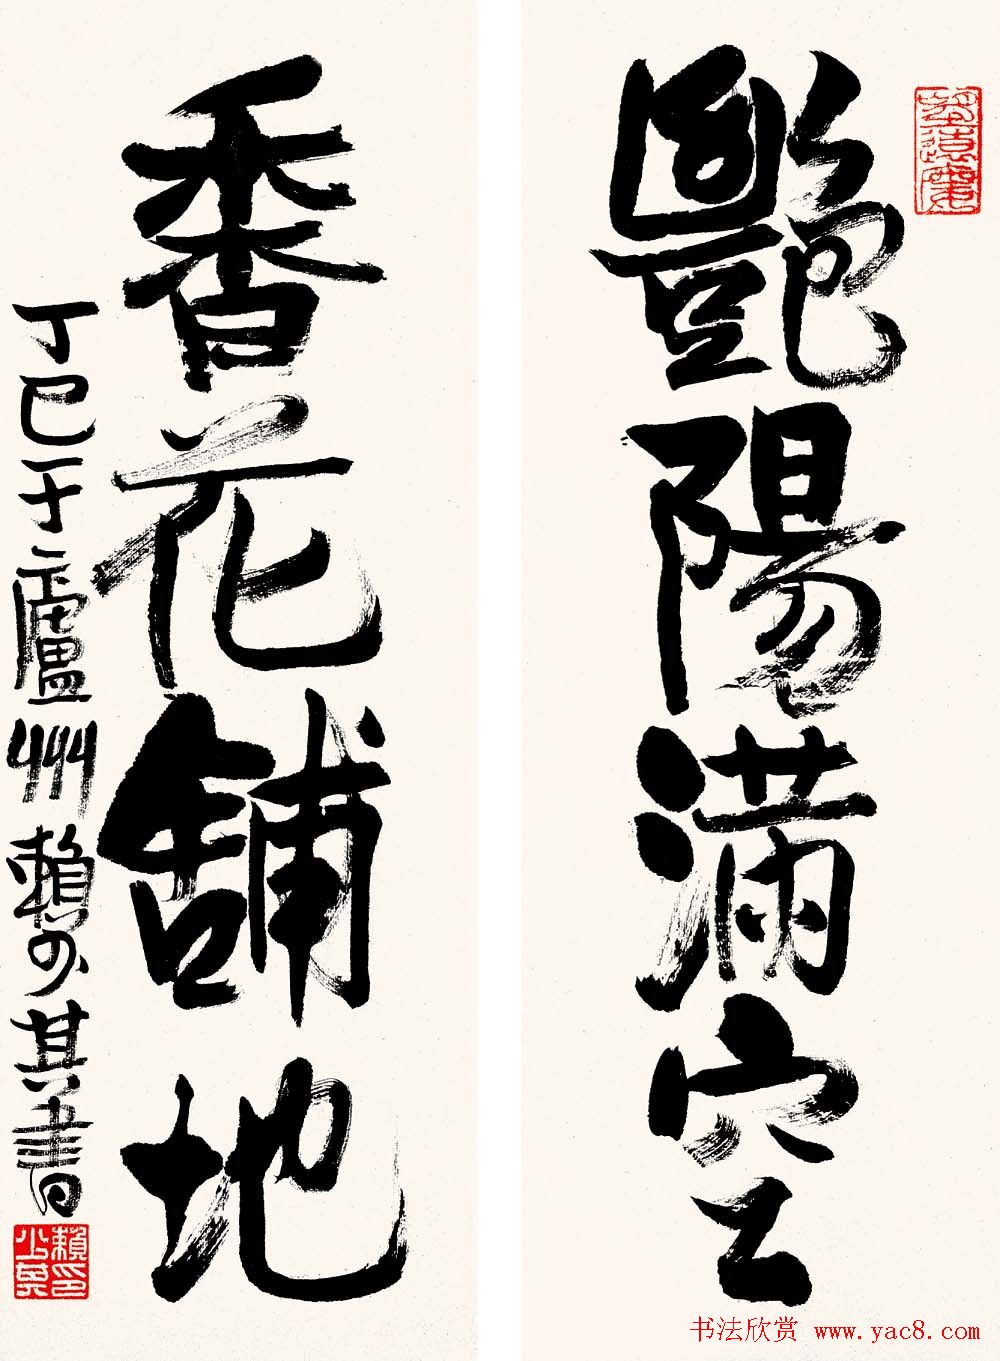 艷陽滿空
香花舖地
丁巳于廬州賴少其書
賴少其印
书法欣赏 www.yac8.com